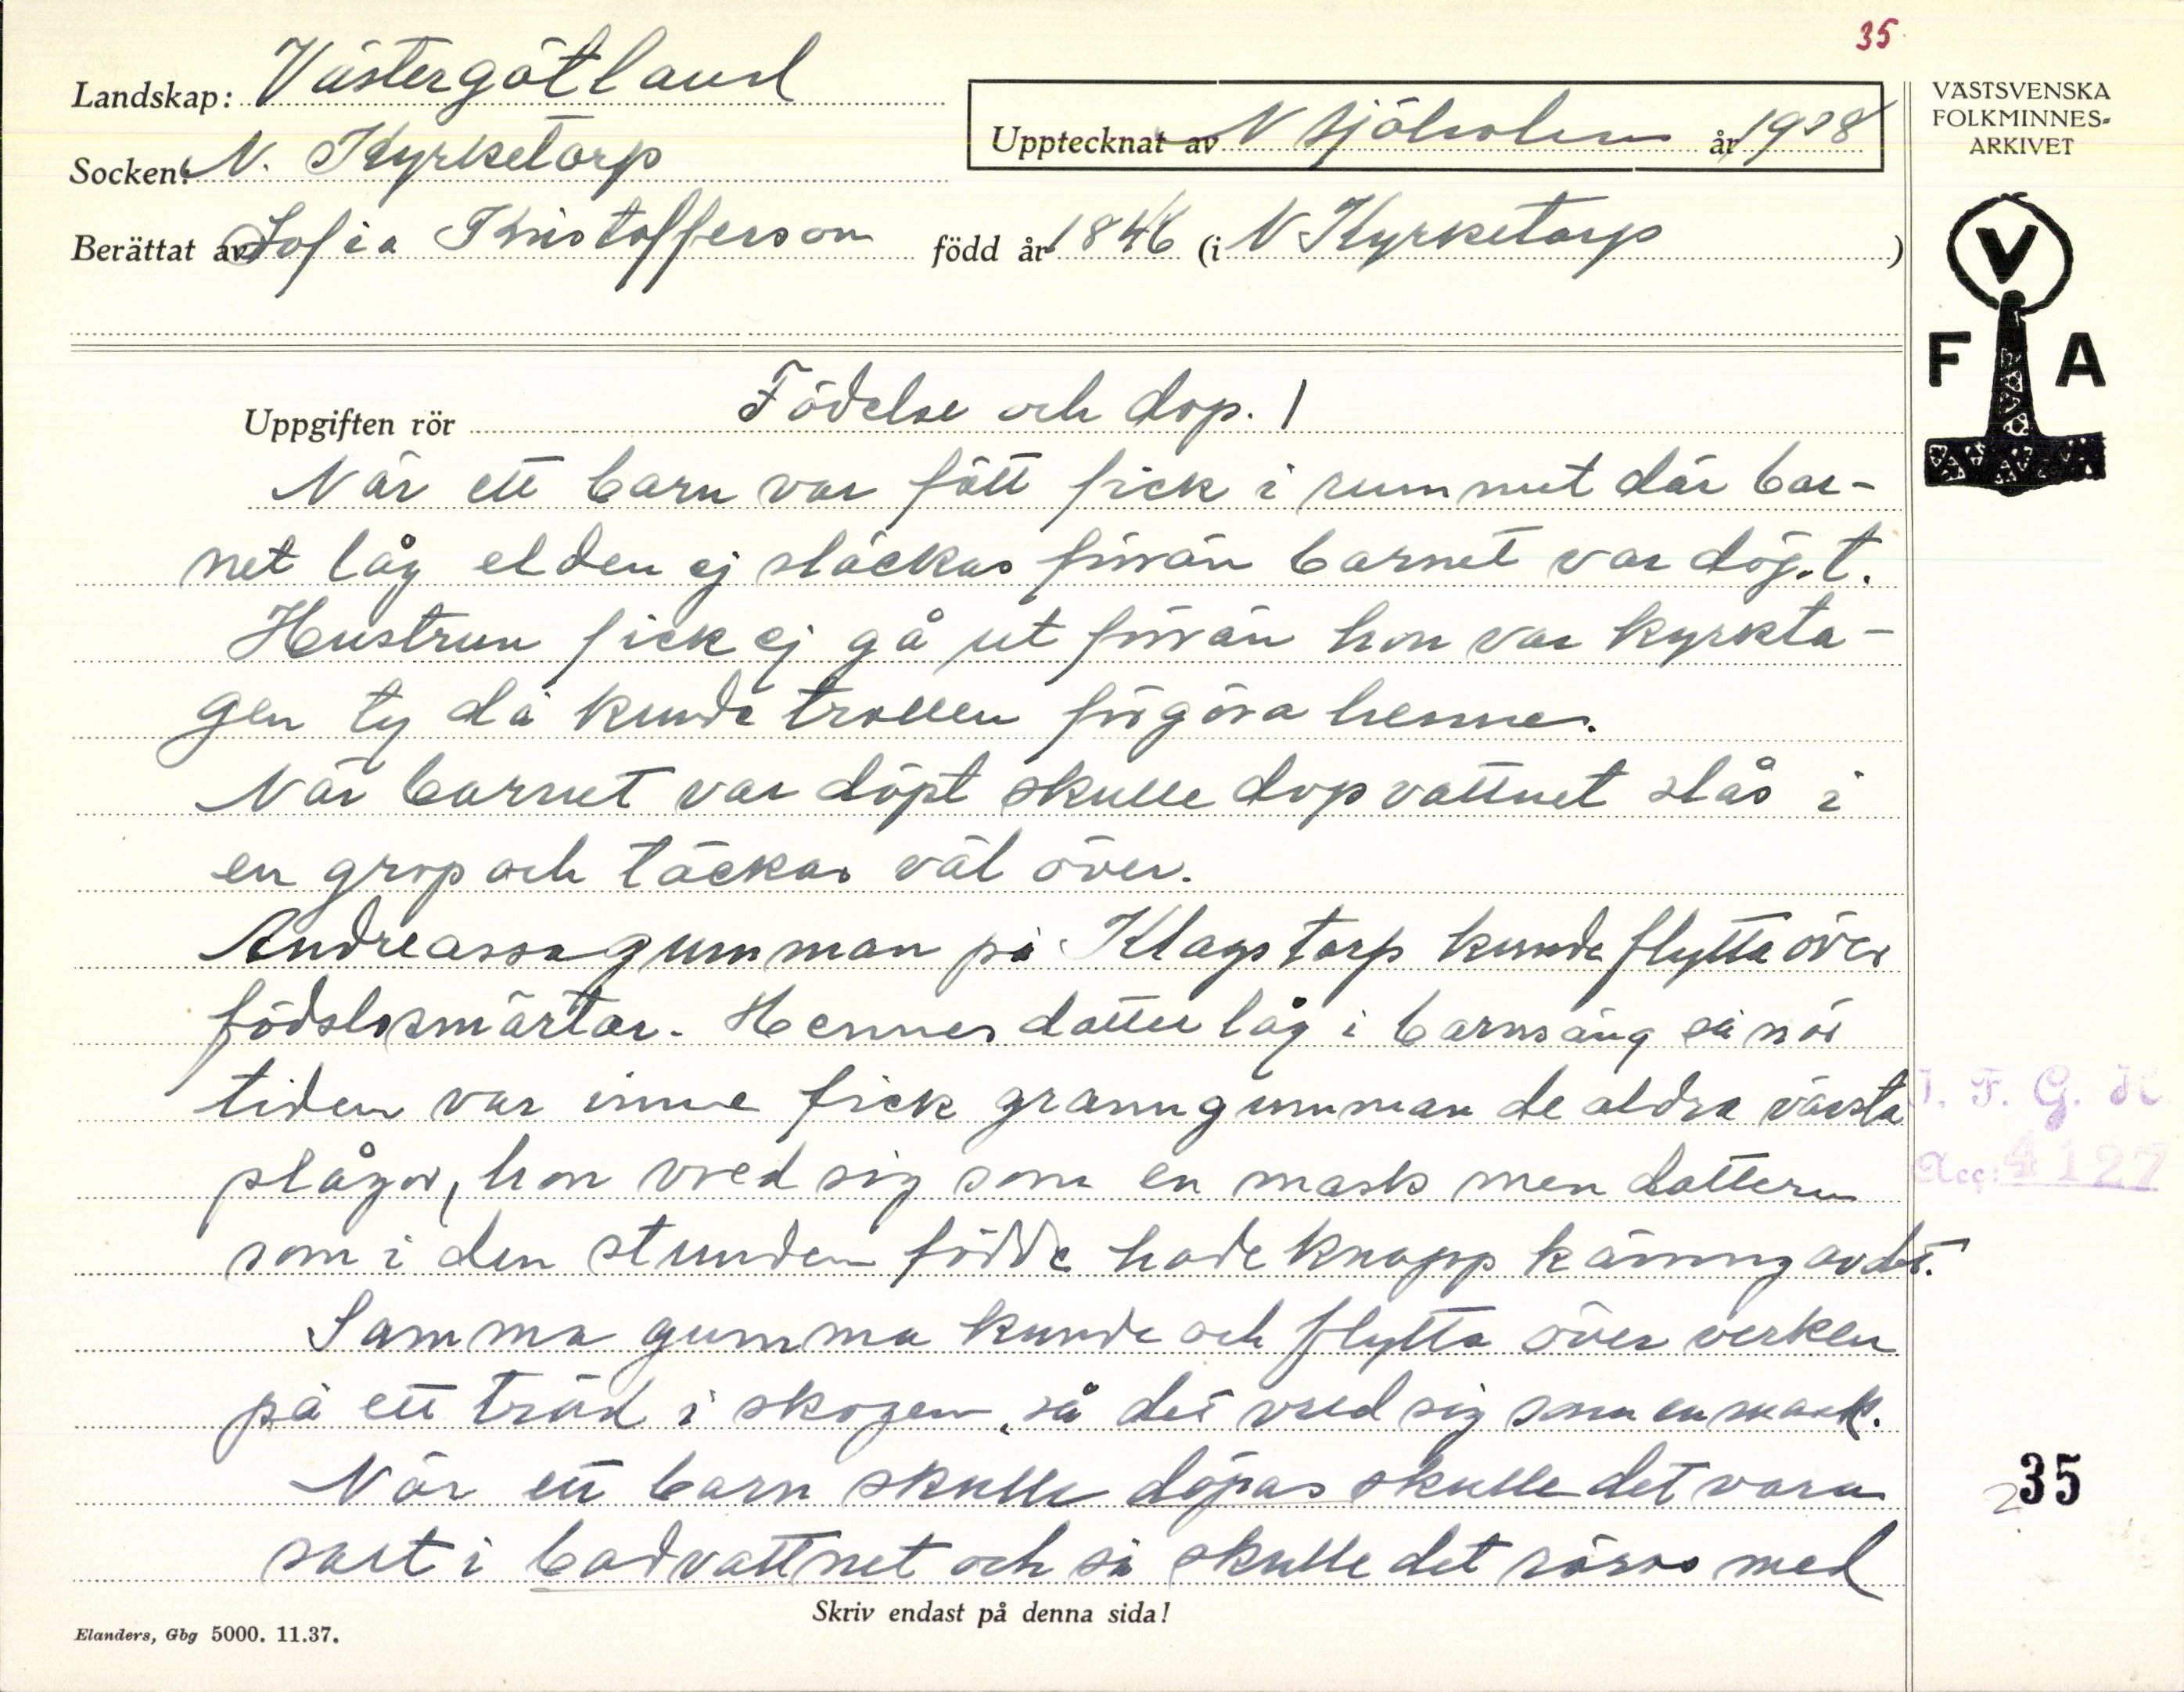 35
Landskap: Västergötland
Socken: N. Kyrketorp
Upptecknat av N Sjöholm år 1938
Berättat av Sofia Kristofferson född år 1846 (i N Kyrketorp )
VÄSTSVENSKA
FOLKMINNES-
ARKIVET
V
F A
Uppgiften rör Födelse och dop. 1
När ett barn var fött fick i rummet där bar-
net låg elden ej släckas förrän barnet var döpt.
Hustrun fick ej gå ut förrän hon var kyrkta-
gen ty då kunde trollen förgöra henne.
När barnet var döpt skulle dopvattnet slås i
en grop och täckas väl över.
Andreassagumman på Klagstorp kunde flytta över
födslosmärtar. Hennes dotter låg i barnsäng så när
tiden var inne fick granngumman de aldra värsta
plågor, hon vred sig som en mask men dottern
som i den stunden födde hade knapp känning av det.
Samma gumma kunde och flytta över verken
på ett träd i skogen, så det vred sig som en mask.
När ett barn skulle döpas skulle det vara
salt i badvattnet och så skulle det röras med
I. F. G. H
Acc: 4127
2 35
Skriv endast på denna sida!
Elanders, Gbg 5000. 11.37.